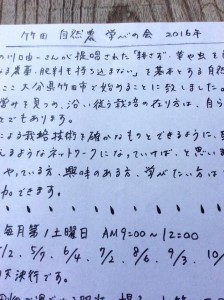 竹田 自然農 学びの会 2016年
川口由一さんが提唱された「耕さず、草や虫を
農薬・肥料も持ち込まない」を基本とする自然
ここ大分県竹田市で始めることに致しました。
営みを見つめ、沿い従う栽培の在り方は、自
とでもあります。
による栽培技術を確かなものとできるように、
えるようなネットワークになっていけば、と思いま
やっている方、興味のある方、学びたい方は
加できます。
毎月第1土曜日 AM9:00〜12:00
/2、5/7、6/4、7/2、8/6、9/3、10/
天決行です。